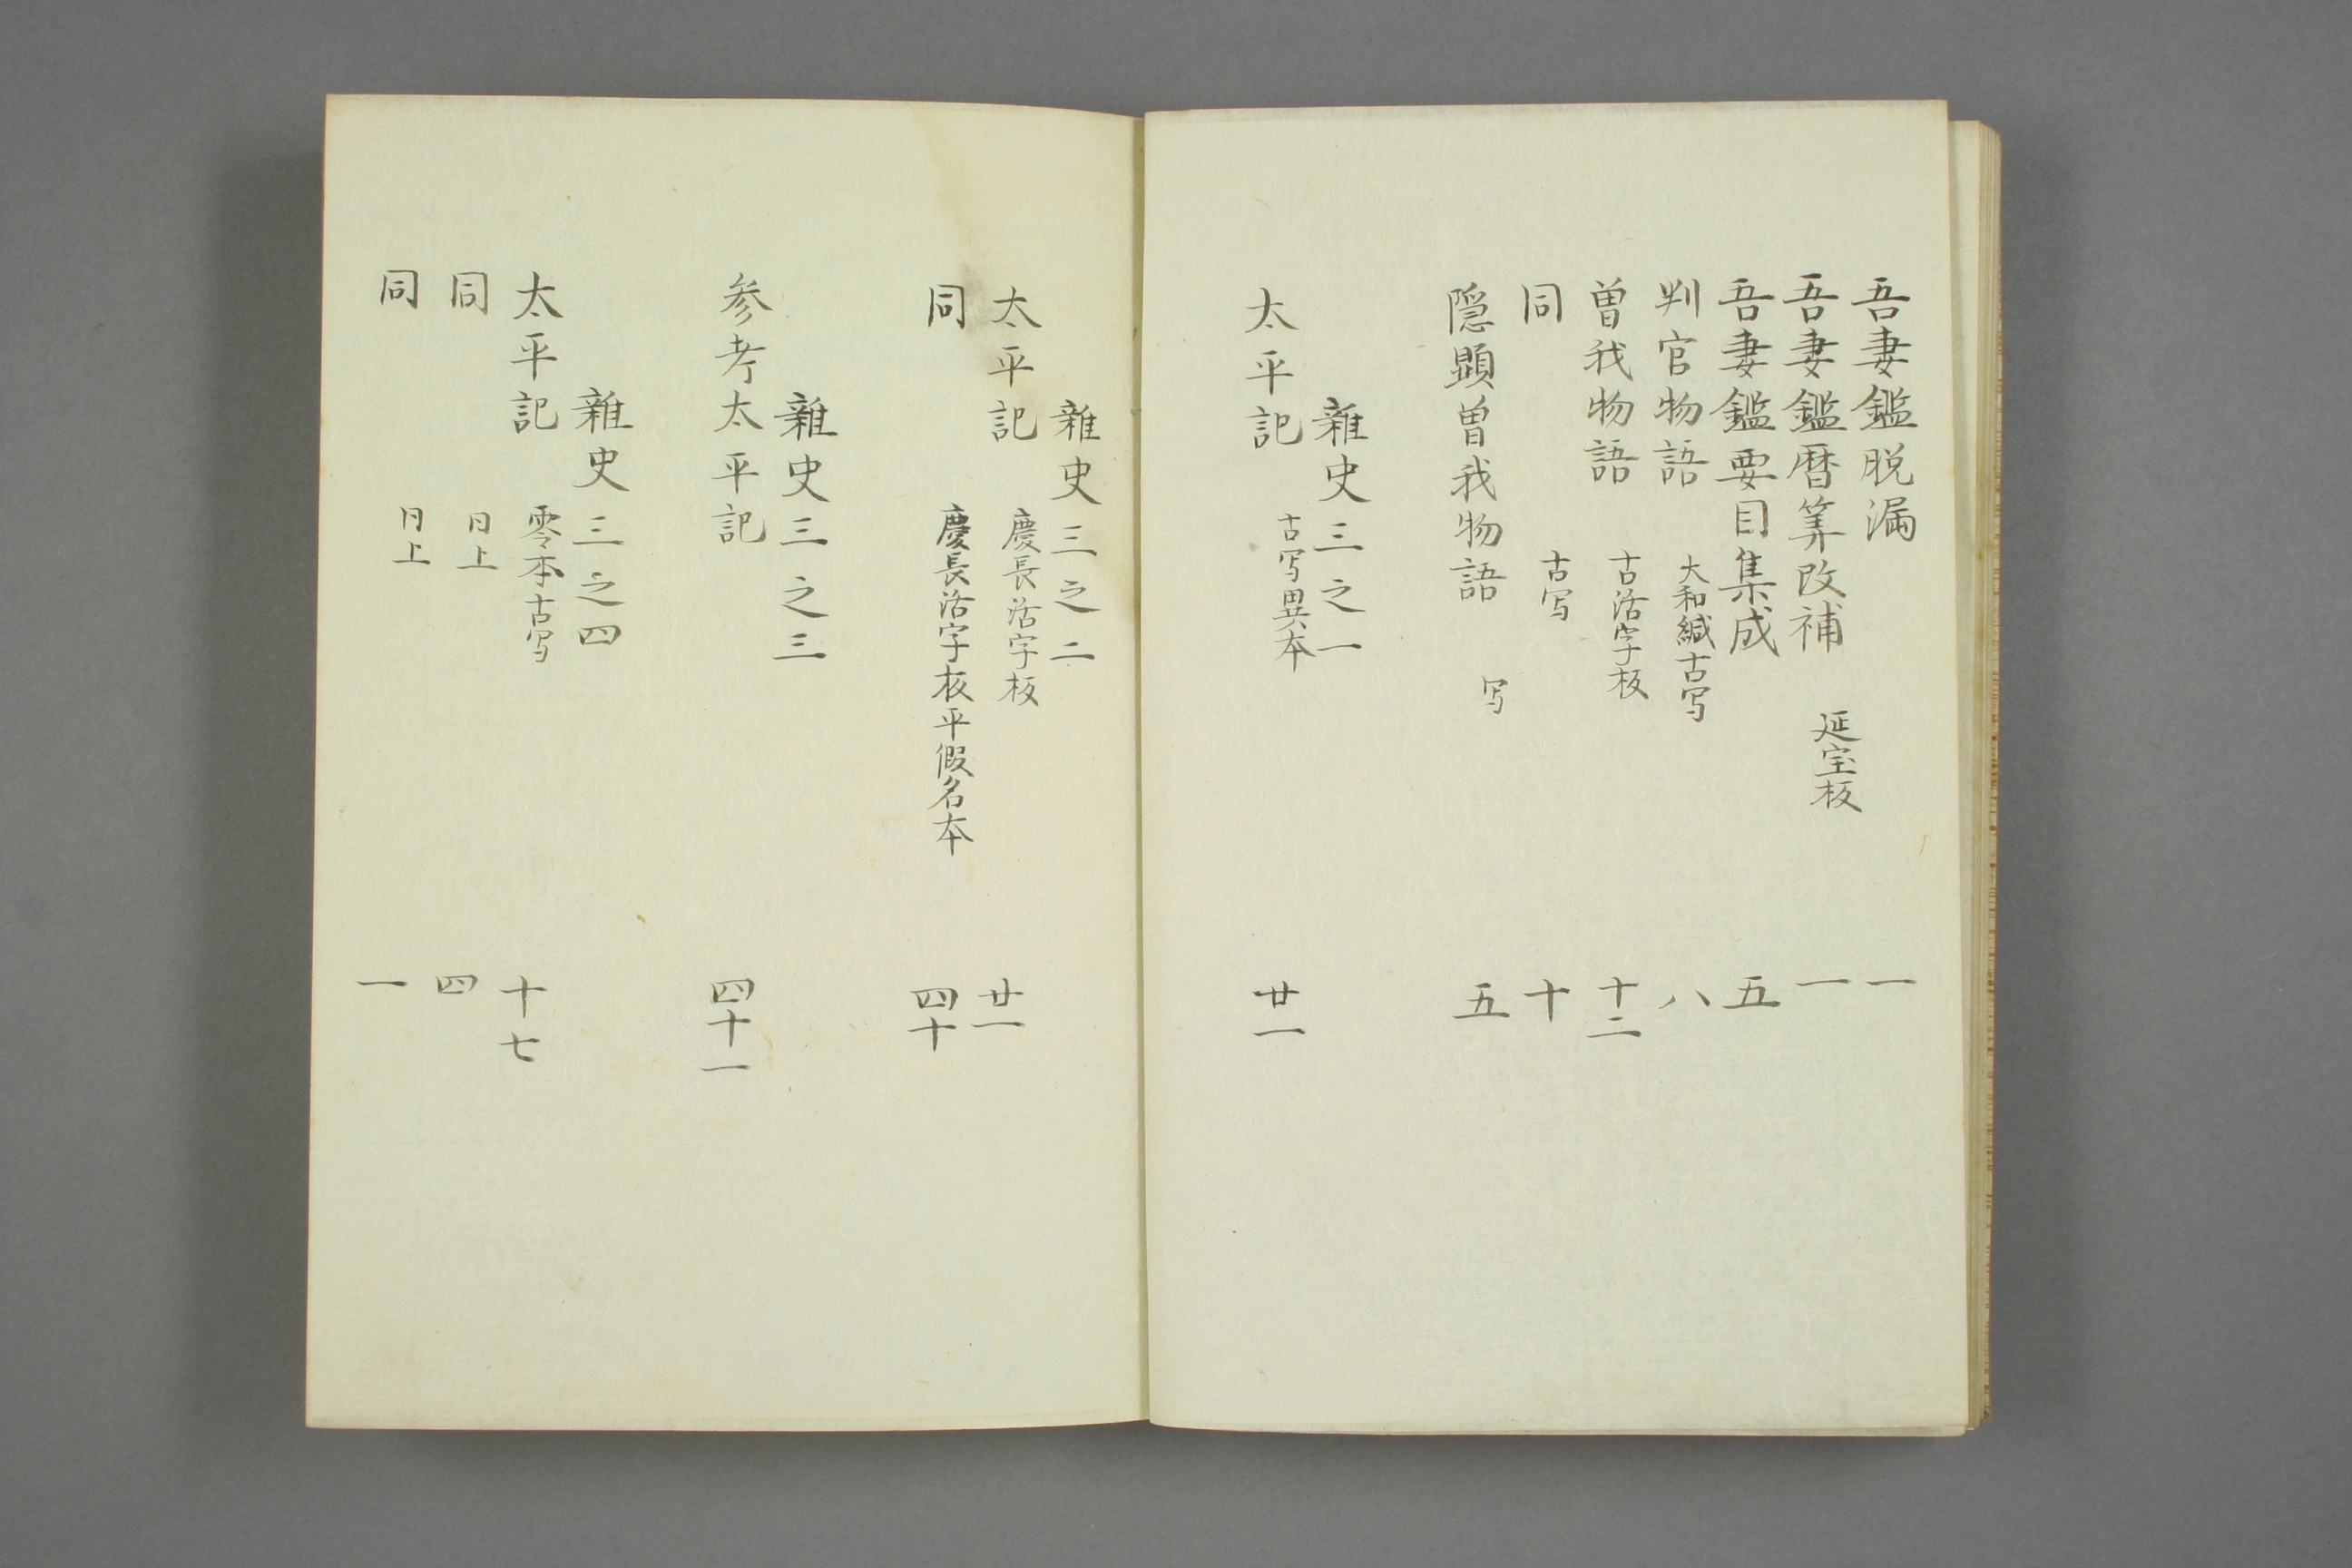 吾妻鑑脱漏 一
吾妻鑑暦筭改補 延宝板 一
吾妻鑑要目集成 五
判官物語 大和緘古写 八
曽我物語 古活字板 十二
同 古写 十
隠顕曽我物語 写 五
雜史三之一
太平記 古写異本 廿一
雜史三之二
太平記 慶長活字板 廿一
同 慶長活字板平假名本 四十
雜史三之三
参考太平記 四十一
雜史三之四
太平記 零本古写 十七
同 同上 四
同 同上 一